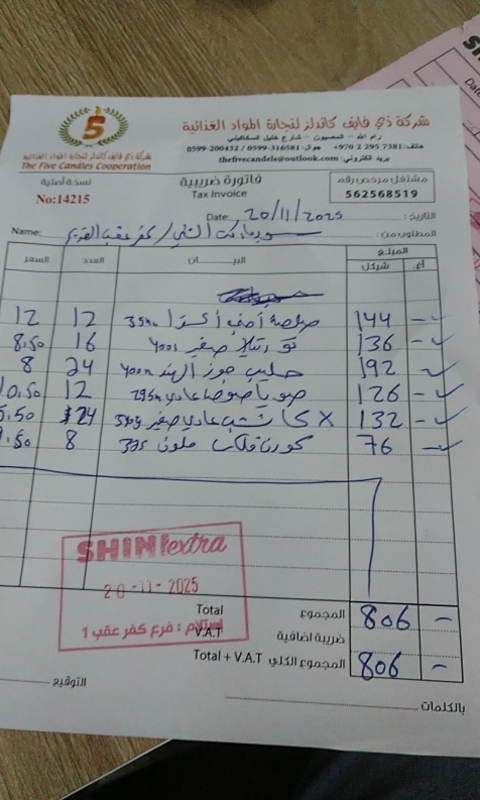 شركة ذي فايف كاندلز لتجارة المواد الغذائية
رام الله - المصيون - شارع خليل السكاكيني
هاتف: +970 2 295 7381 جوال: 0599-316581 / 0599-200432
بريد الكتروني: thefivecandels@outlook.com
5
شركة ذي فايف كاندلز لتجارة المواد الغذائية
The Five Candles Cooperation
SHIN
Date
مشتغل مرخص رقم
562568519
فاتورة ضريبية
Tax Invoice
نسخة أصلية
No:14215
التاريخ: Date: 20/11/2025
المطلوب من: سوبرماركت الشني / كفر عقب Name:
المبلغ البيـــــان العدد السعر
أغ. شيكل
144 - صلصة 12 12
136 - صغير 400g 16 8.50
192 - حليب جوز الهند 400m 24 8
126 - صويا صوص عادي 295m 12 10.50
132 - X كاتشب عادي صغير 340g 24 5.50
76 - كورن فلكس ملون 375 8 9.50
SHINI extra
20-11-2025
استلام : فرع كفر عقب 1
المجموع Total 806 -
ضريبة اضافية V.A.T
المجموع الكلي Total + V.A.T 806 -
بالكلمات
التوقيع